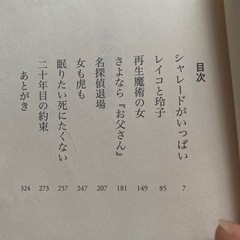 目次
シャレードがいっぱい 7
レイコと玲子 85
再生魔術の女 149
さよなら『お父さん』 181
名探偵退場 207
女も虎も 247
眠りたい死にたくない 257
二十年目の約束 273
あとがき 324